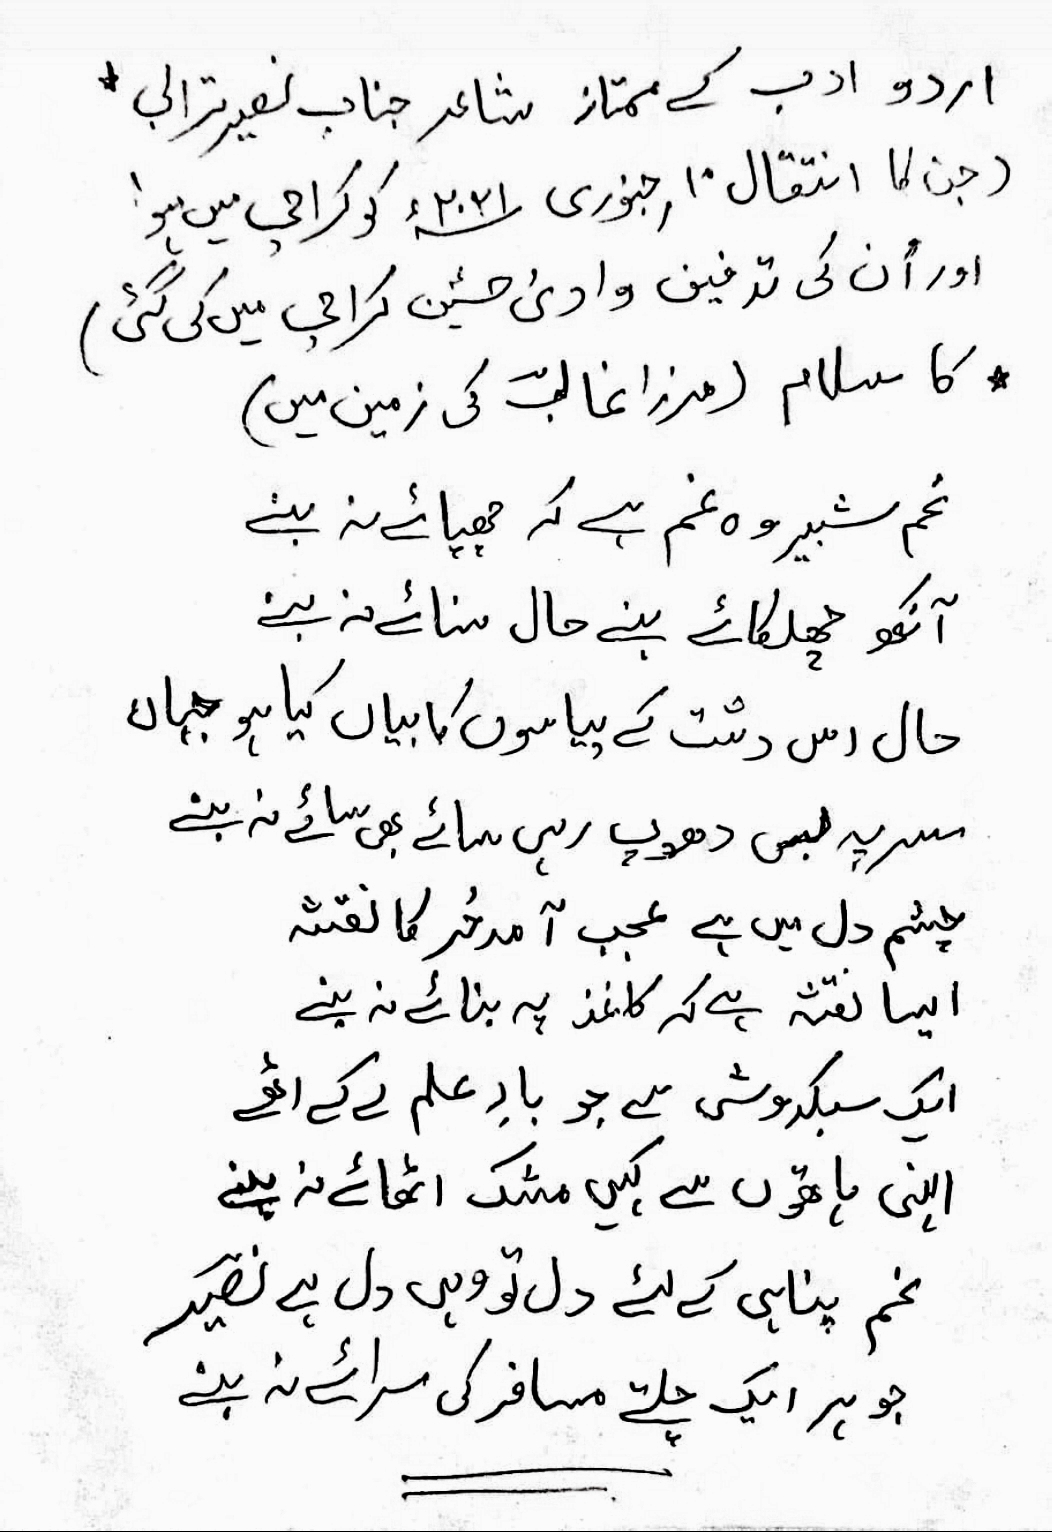 اردو ادب کے ممتاز شاعر جناب نصیر ترابی *
(جن کا انتقال ۱۰ جنوری ۲۰۲۱ء کو کراچی میں ہوا
اور اُن کی تدفین وادئ حسین کراچی میں کی گئی)
* کا سلام (مرزا غالبؔ کی زمین میں)
غم شبیر وہ غم ہے کہ چھپائے نہ بنے
آنکھ چھلکائے بنے حال سنائے نہ بنے
حال اس دشت کے پیاسوں کا بیاں کیا ہو جہاں
سر پہ بھی دھوپ رہی سائے بھی سائے نہ بنے
چشم دل میں ہے عجب آمد حُر کا نقشہ
ایسا نقشہ ہے کہ کاغذ پہ بنائے نہ بنے
ایک سبکدوشی سے جو بادِ علم لے کے اٹھے
اپنی ہاتھوں سے کہیں مشک اٹھائے نہ بنے
غم پناہی کے لئے دل تو وہی دل ہے نصیرؔ
جو ہر ایک چلتے مسافر کی سرائے نہ بنے